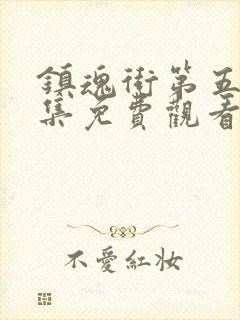 鎮魂街第五
集免費觀看
不愛紅妝